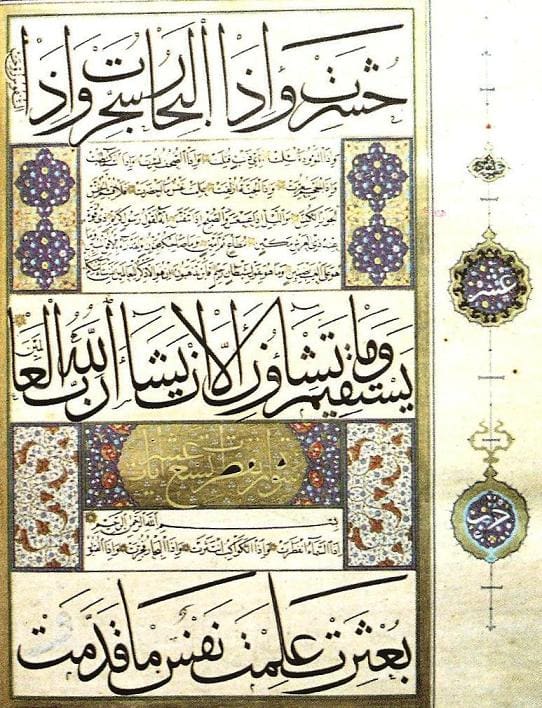 حشرت واذا البحار سجرت واذا
النفوس زوجت
واذا الموؤدة سئلت باي ذنب قتلت واذا الصحف نشرت واذا السماء كشطت
واذا الجحيم سعرت واذا الجنة ازلفت علمت نفس ما احضرت فلا اقسم بالخنس
الجوار الكنس واليل اذا عسعس والصبح اذا تنفس انه لقول رسول كريم ذي قوة
عند ذي العرش مكين مطاع ثم امين وما صاحبكم بمجنون ولقد راه بالافق المبين
وما هو على الغيب بضنين وما هو بقول شيطان رجيم فاين تذهبون ان هو الا ذكر للعالمين لمن شاء منكم ان
يستقيم وما تشاؤن الا ان يشا الله رب العا
لمين
سورة انفطرت تسع عشر ايات
بسم الله الرحمن الرحيم
اذا السماء انفطرت واذا الكواكب انتثرت واذا البحار فجرت واذا القبور
بعثرت علمت نفس ما قدمت
عشر
حزب